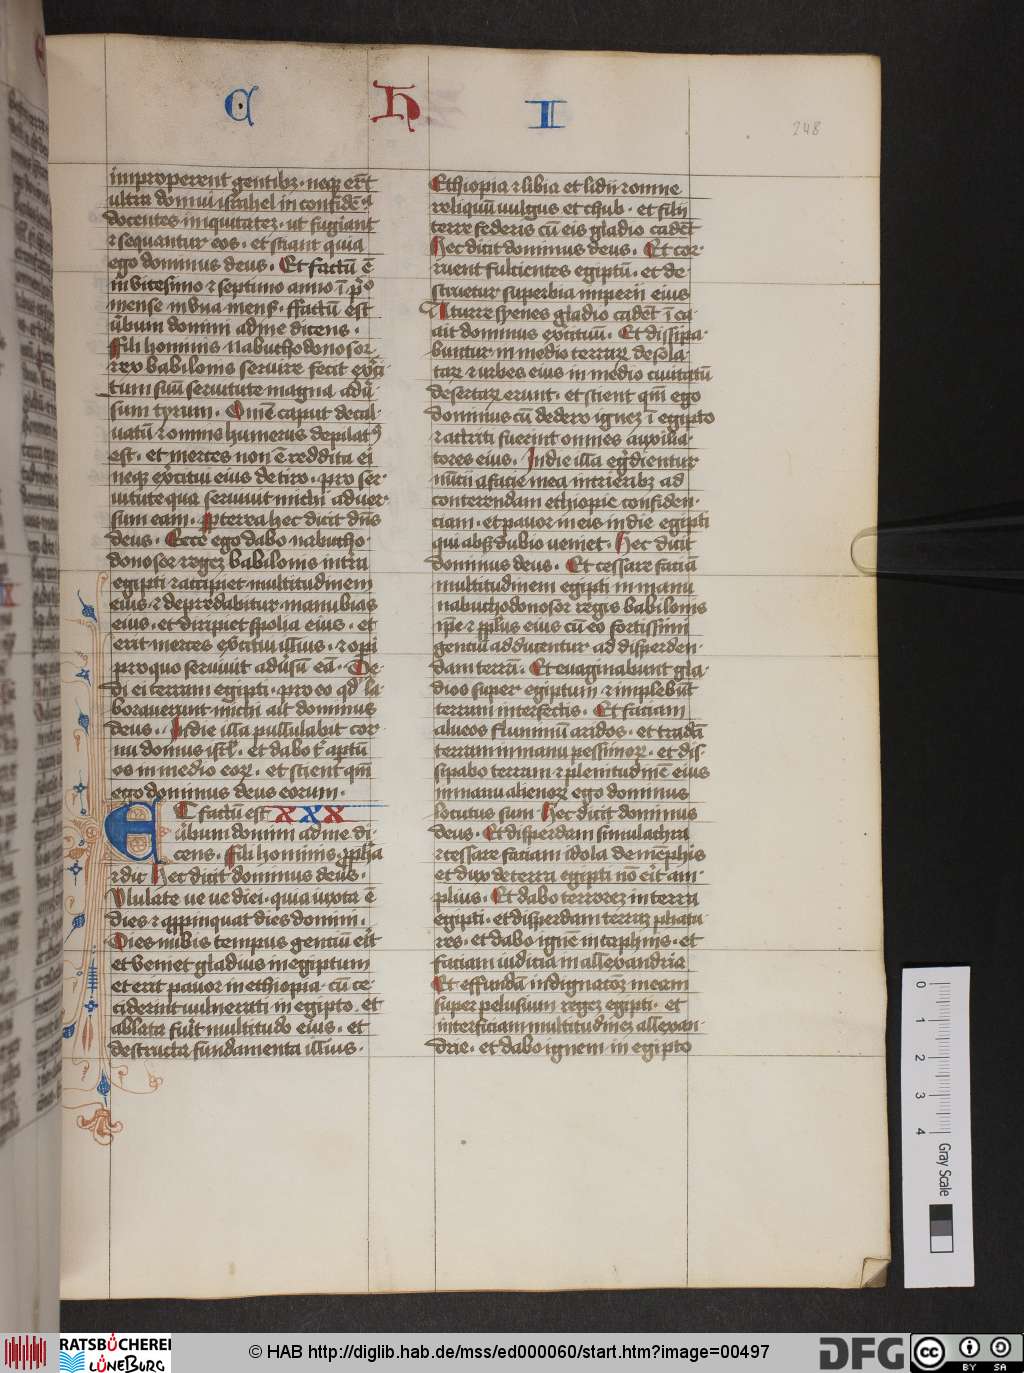 C H I
248
improperent gentibꝫ · neqꝫ erūt
ultra domui israhel in confidēcia
docentes iniquitatez · ut fugiant
⁊ sequantur eos · et sciant quia
ego dominus deus · Et factū ē
in vicesimo ⁊ septimo anno ī pͦmo
mense in vna mensꝭ · ffactū est
ūbum domini ad me dicens ·
Fili hominis Nabuchodonosor
rex babilonis seruire fecit exerci
tum suū seruitute magna adūͥ
sum tyrum · Omē caput decal
uatū ⁊ omnis humerus depilatꝰ
est · et merces non ē reddita ei
neqꝫ exercitui eius de tiro · pro ser
uitute qua seruiuit michi aduer
sum eam · ꝓpterea hec dicit dn̄s
deus · Ecce ego dabo nabucho
donosor regez babilonis in trā
egipti ⁊ accipiet multitudinem
eius · ⁊ depredabitur manubias
eius · et diripiet spolia eius · et
erit merces exercitui illius · ⁊ opi
pro quo seruiuit adūsū eā · De
di ei terram egipti · pro eo qd̛ la
borauerunt michi ait dominus
deus · In die illa pullulabit cor
nu domus isrl̄ · et dabo tͥ aptū
os in medio eoꝝ · et scient qm̄
ego dominus deus eorum ·
ET factū est XXX
ūbum domini ad me di
cens · Fili hominis ꝓpha
⁊ dic Hec dicit dominus deus ·
Vlulate ue ue diei · quia iuxta ē
dies ⁊ appinquat dies domini ·
Dies nubis tempus gentiū erit
et veniet gladius in egiptum
et erit pauor in ethiopia · cū ce
ciderint uulnerati in egipto · et
ablata fuit multitudo eius · et
destructa fundamenta illius ·
Ethiopia ⁊ libia et lidii ⁊ omne
reliquū uulgus et chub · et filii
terre federis cū eis gladio cadēt
Hec dicit dominus deus · Et cor
ruent fulcientes egiptū · et de
struetur superbia imperii eius
A turre syenes gladio cadēt ī ea
ait dominus exercituū · Et dissipa
buntur in medio terraꝝ desola
taꝝ ⁊ urbes eius in medio ciuitatū
desertaꝝ erunt · et scient qm̄ ego
dominus cū dedero ignez ī egipto
⁊ attriti fuerint omnes auxilia
tores eius · In die illa egredientur
nūcii a facie mea in trieribꝫ ad
conterendam ethiopie confiden
ciam · et pauor in eis in die egipti
qui absqꝫ dubio ueniet · Hec dicit
dominus deus · Et cessare facia
multitudinem egipti in manu
nabuchodonosor regis babilonis
ip̄e ⁊ pp̄lus eius cū eo fortissimi
gentiū adducentur ad disperden
dam terrā · Et euaginabunt gla
dios super egiptum ⁊ implebūt
terram interfectis · Et faciam
alueos fluminū aridos · et tradā
terram in manu pessimoꝝ · et dis
sipabo terram ⁊ plenitudinē eius
in manu alienoꝝ ego dominus
locutus sum Hec dicit dominus
deus · Et disperdam simulachra
⁊ cessare faciam idola de mēphis
et dux de terra egipti nō erit am
plius · Et dabo terrorez in terra
egipti · et disperdam terraz phatu
res · et dabo ignē in taphnis · et
faciam iudicia in allexandria
Et effundā indignatōez meam
super pelusium regez egipti · et
interficiam multitudinez allexan
drie · et dabo ignem in egipto
0 1 2 3 4
Gray Scale
RATSBÜCHEREI
LÜNEBURG
© HAB http://diglib.hab.de/mss/ed000060/start.htm?image=00497
DFG
cc BY SA